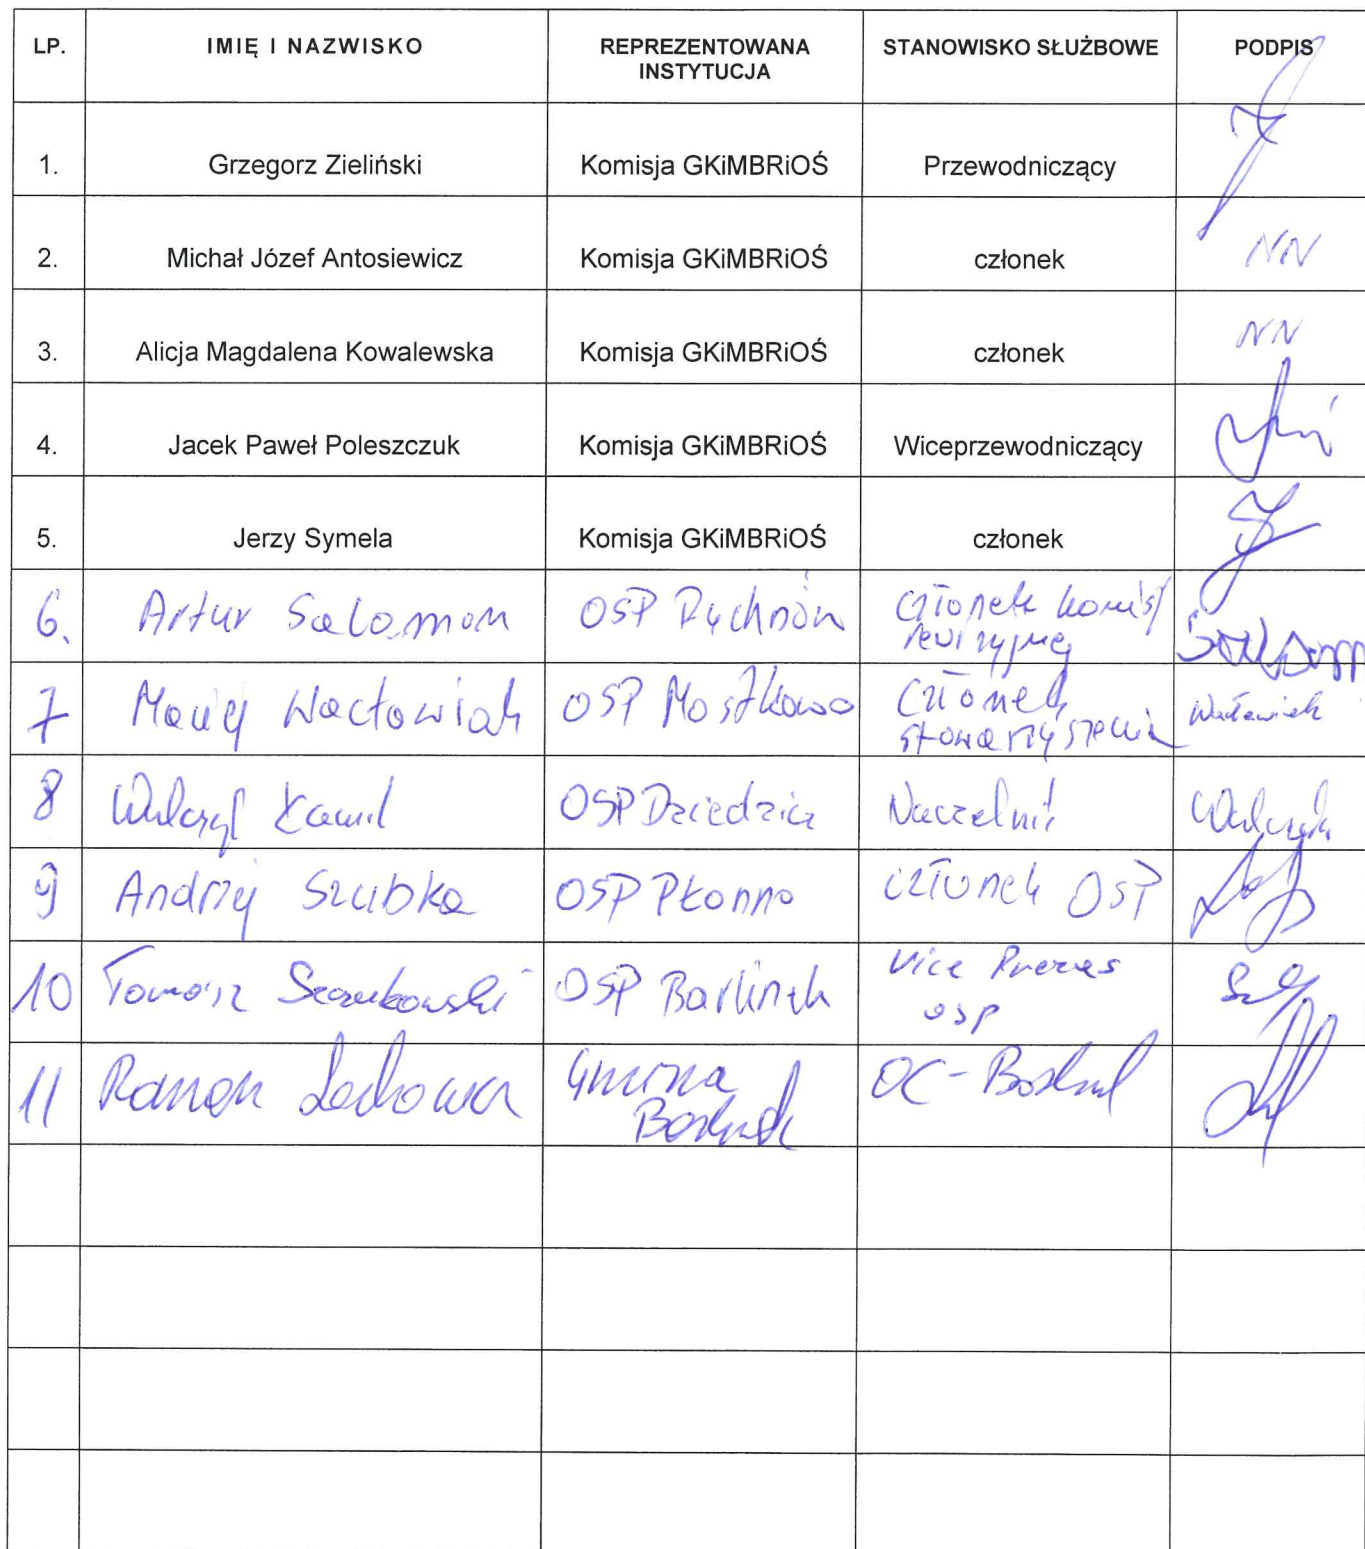 LP. IMIĘ I NAZWISKO REPREZENTOWANA INSTYTUCJA STANOWISKO SŁUŻBOWE PODPIS
1. Grzegorz Zieliński Komisja GKiMBRiOŚ Przewodniczący
2. Michał Józef Antosiewicz Komisja GKiMBRiOŚ członek NN
3. Alicja Magdalena Kowalewska Komisja GKiMBRiOŚ członek NN
4. Jacek Paweł Poleszczuk Komisja GKiMBRiOŚ Wiceprzewodniczący
5. Jerzy Symela Komisja GKiMBRiOŚ członek
6. Artur Salomon OSP Rychnów członek komisji rewizyjnej
7 Maciej Wacławiak OSP Mostkowo członek stowarzyszenia
8 Walczyk Kamil OSP Dziedzice Naczelnik
9 Andrzej Szubka OSP Płonno członek OSP
10 Tomasz OSP Barlinek Vice Prezes OSP
11 Roman Gmina Barlinek OC-Barlinek